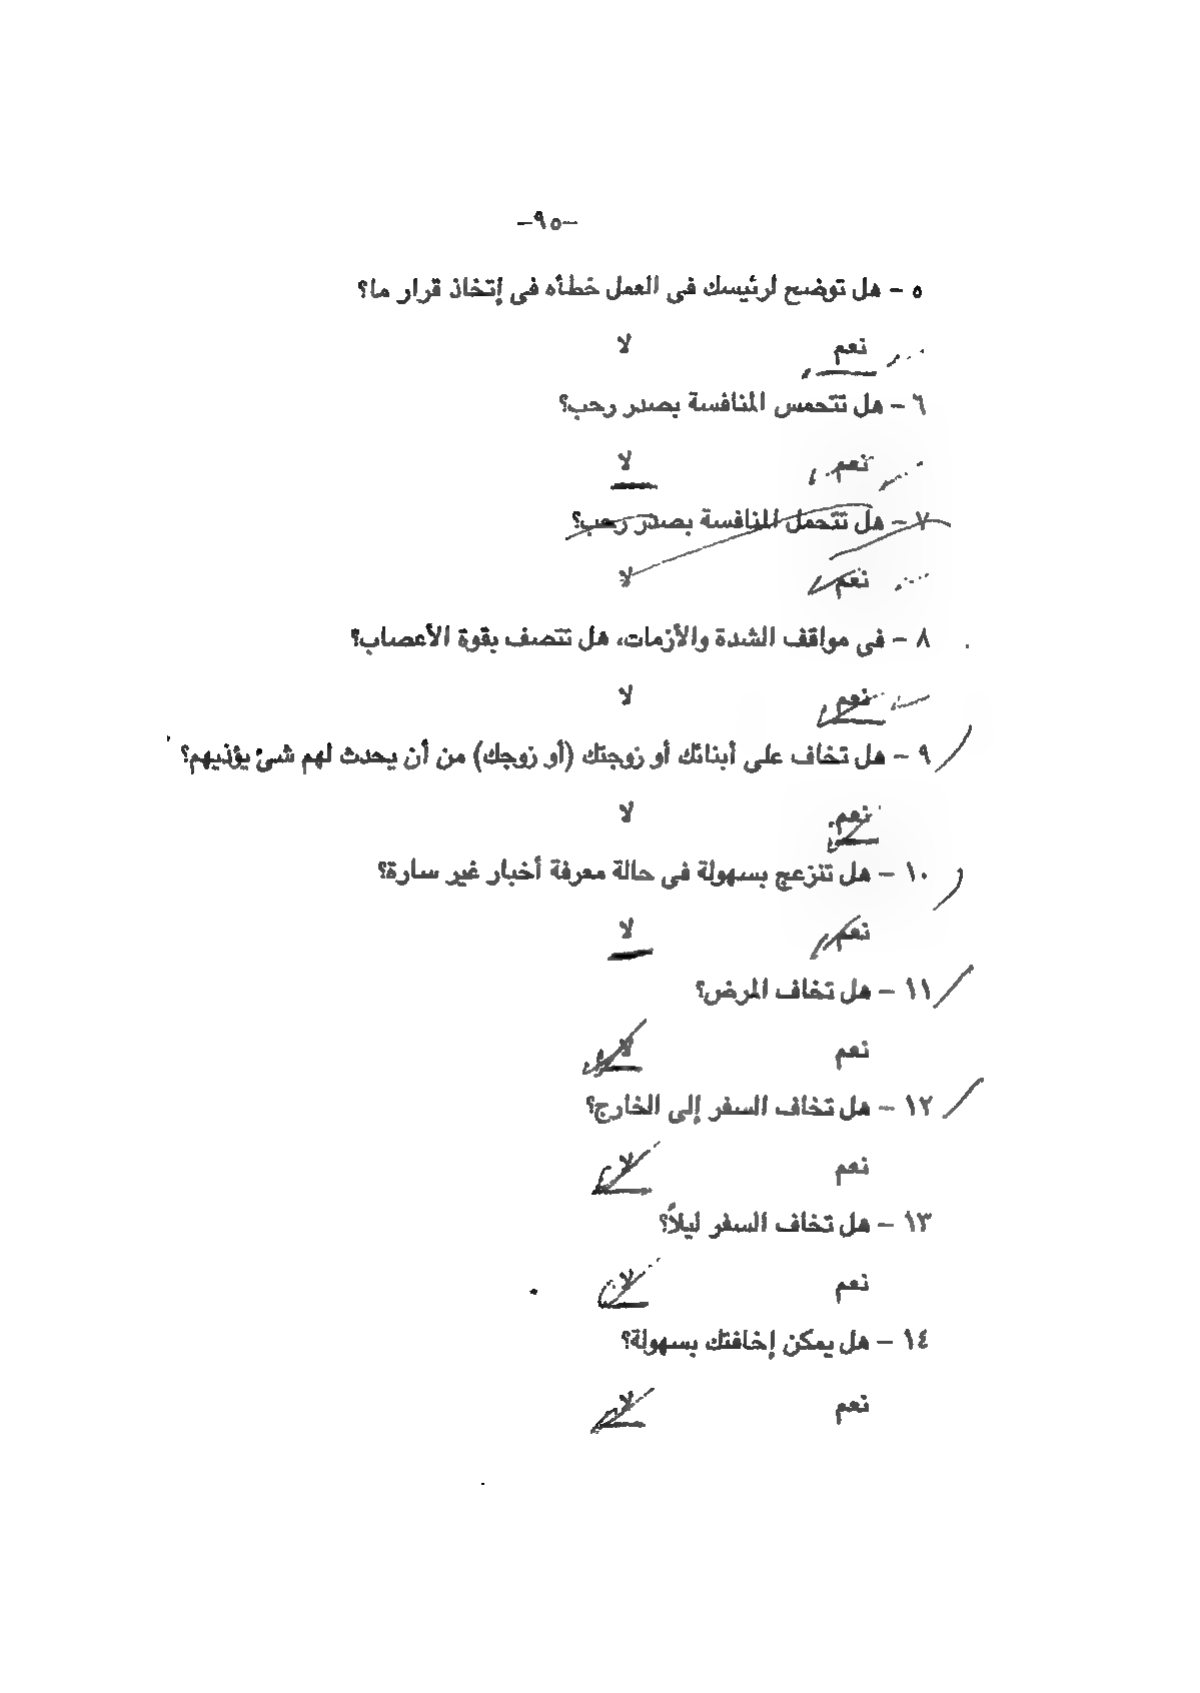 -٩٥-
٥ - هل توضح لرئيسك فى العمل خطأه فى إتخاذ قرار ما؟
نعم لا
٦ - هل تتحمس المنافسة بصدر رحب؟
نعم لا
٧ - هل تتحمل المنافسة بصدر رحب؟
نعم لا
٨ - فى مواقف الشدة والأزمات، هل تتصف بقوة الأعصاب؟
نعم لا
٩ - هل تخاف على أبنائك أو زوجتك (أو زوجك) من أن يحدث لهم شئ يؤذيهم؟
نعم لا
١٠ - هل تنزعج بسهولة فى حالة معرفة أخبار غير سارة؟
نعم لا
١١ - هل تخاف المرض؟
نعم لا
١٢ - هل تخاف السفر إلى الخارج؟
نعم لا
١٣ - هل تخاف السفر ليلاً؟
نعم لا
١٤ - هل يمكن إخافتك بسهولة؟
نعم لا